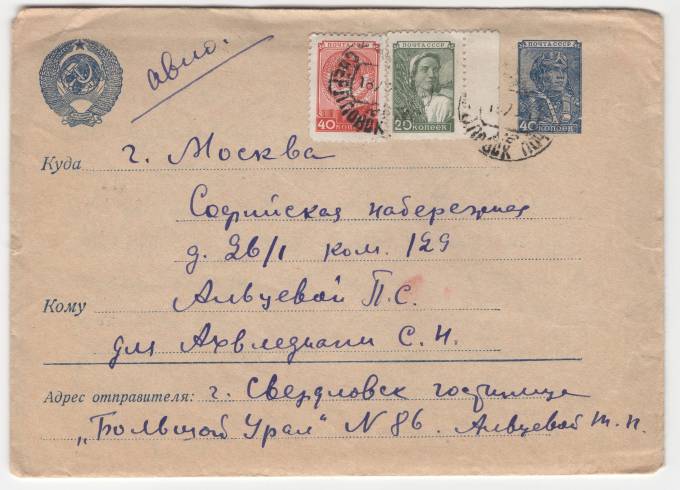 авио.
ПОЧТА СССР
40 КОПЕЕК
ПОЧТА СССР
20 КОПЕЕК
ПОЧТА СССР
40 КОПЕЕК
Куда г. Москва
Софийская набережная
д. 26/1 ком. 129
Кому Алвцевой П.С.
для Ахвледиани С. Н.
Адрес отправителя: г. Свердловск гостиница
„Большой Урал" N 86. Алвцевой Т. П.